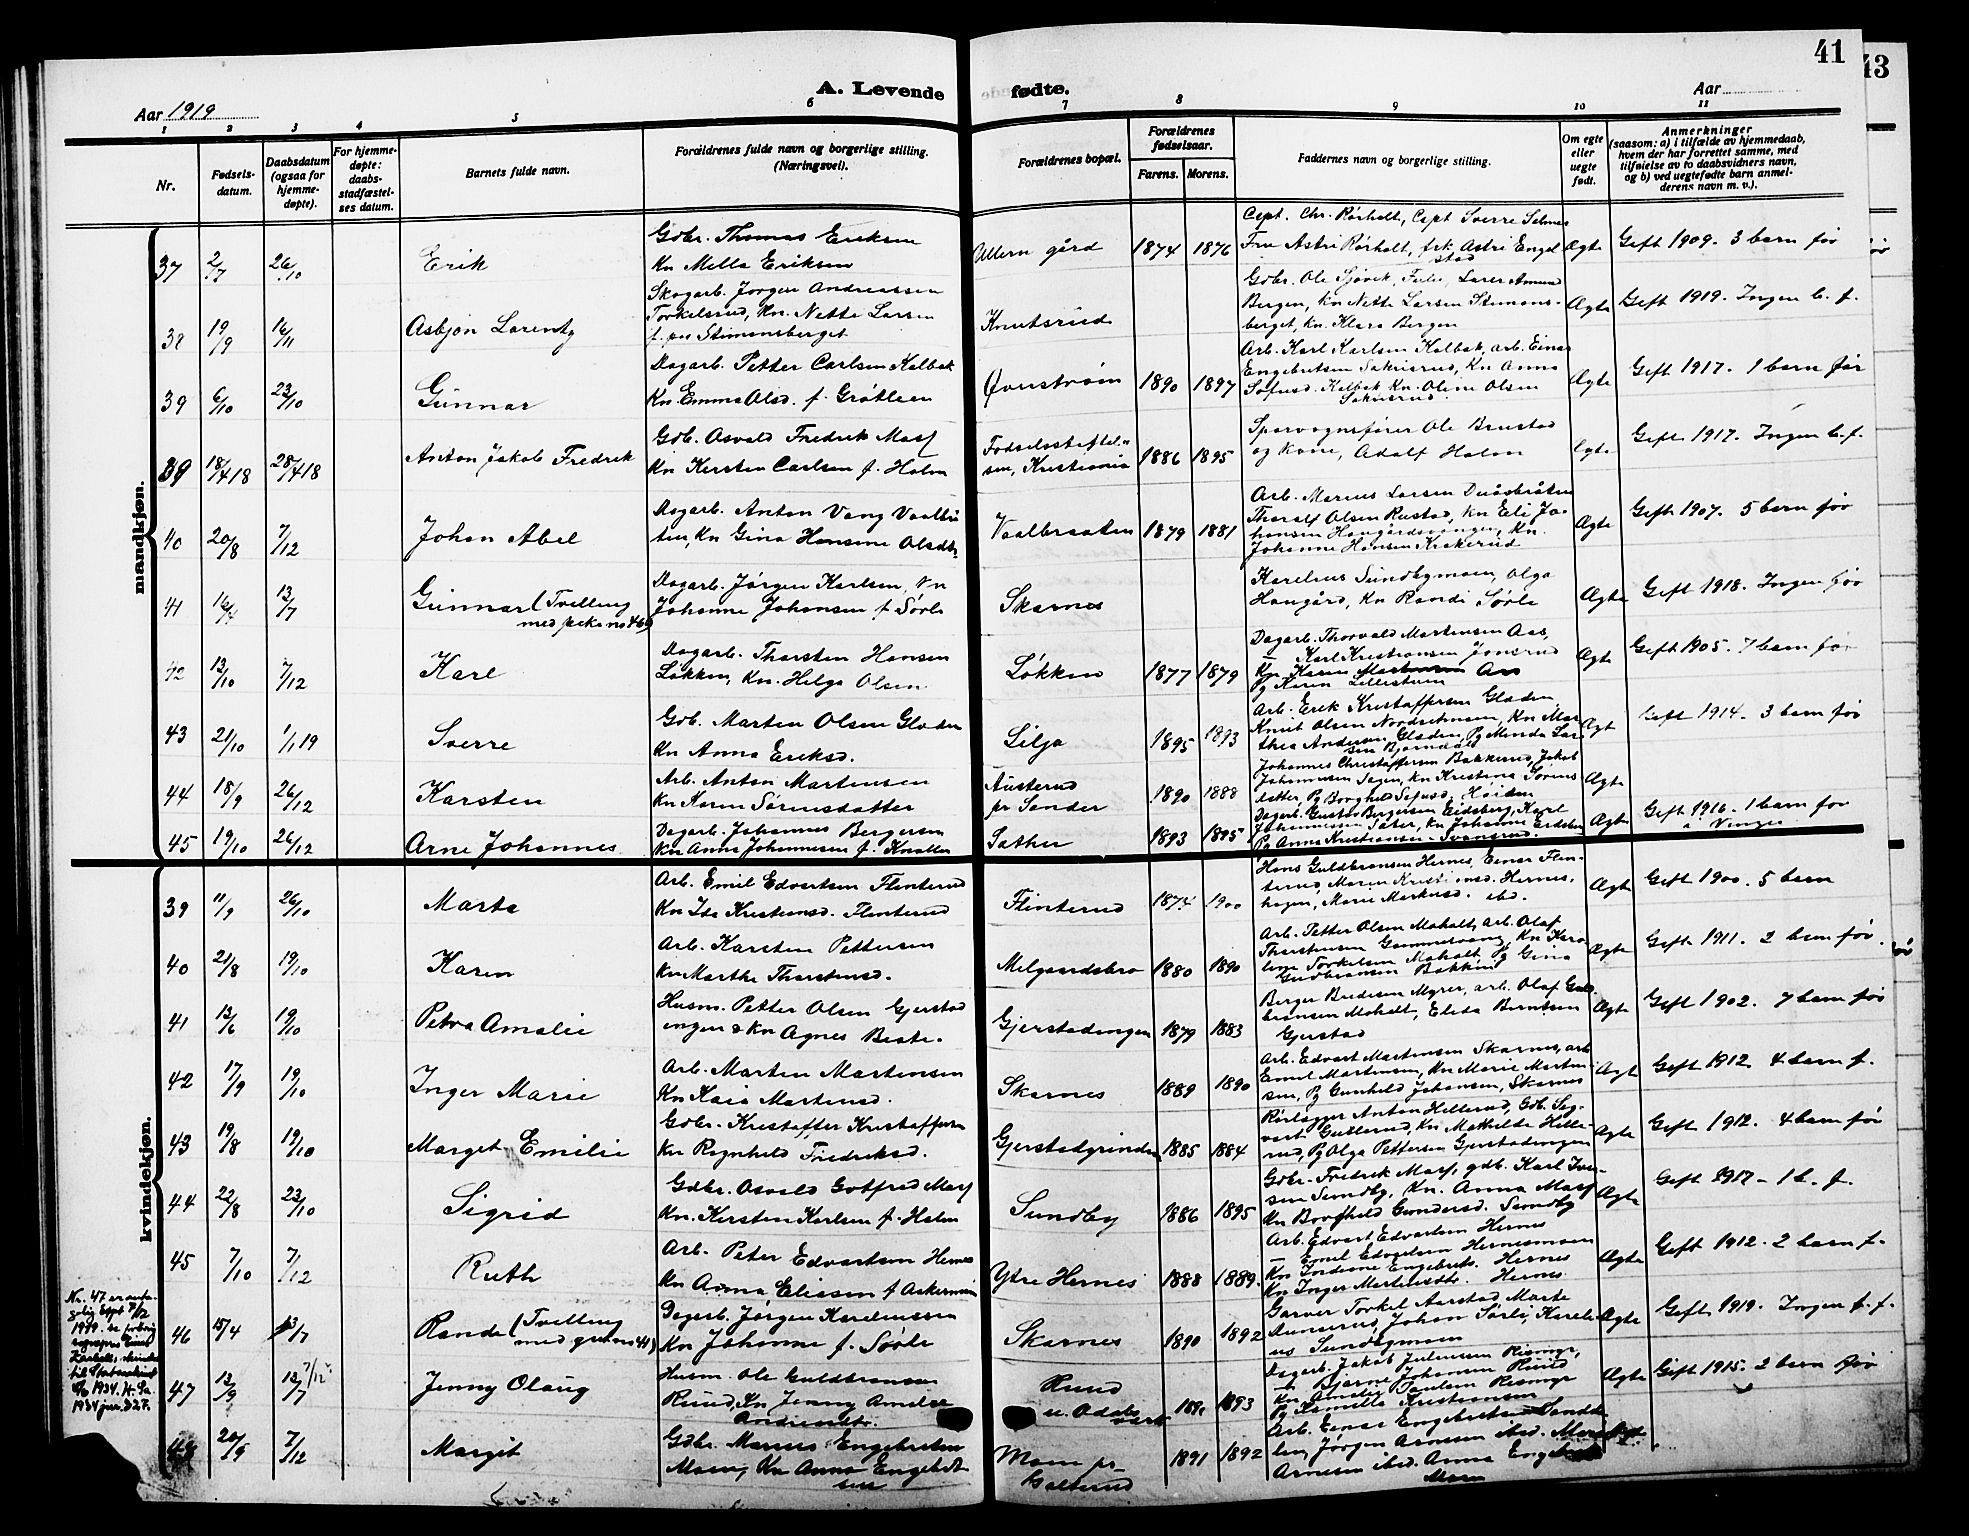 41
43
A. Levende
fødte.
Aar 1919
Aar
1 2 3 4 5 6 7 8 9 10 11
Nr.
Fødsels-
datum.
Daabsdatum
(ogsaa for
hjemme-
døpte).
For hjemme-
døpte:
daabs-
stadfæstel-
ses datum.
Barnets fulde navn.
Forældrenes fulde navn og borgerlige stilling.
(Næringsvei).
Forældrenes bopæl.
Forældrenes
fødselsaar.
Farens. Morens.
Faddernes navn og borgerlige stilling.
Om egte
eller
uegte
født.
Anmerkninger
(saasom: a) i tilfælde av hjemmedaab,
hvem der har forrettet samme, med
tilføielse av to daabsvidners navn,
og b) ved uegtefødte barn anmel-
derens navn m. v.).
mandkjøn.
37 2/7 26/10 Erik
Gdbr. Thomas Eriksen
Kn Mella Eriksen
Ullern gård 1874 1876
Capt. Chr. Rørholt, Capt Sverre Selmer
Fru Astri Rørholt, frk. Astri Engel
stad
Ægte Gift 1909. 3 barn før
38 19/9 16/11 Asbjøn Lorentz
Skogarb. Jørgen Andreassen
Torkelsrud, Kn. Nette Larsen
f. paa Stimansberget
Knutsrud
Gdbr. Ole Sjøvik,
Bergen, Kn Nette Larsen Stimans-
berget, Kn. Klara Bergen
Ægte Gift 1919. Ingen b. f.
39 6/10 23/10 Gunnar
Dagarb. Petter Carlsen Kalbak
Kn. Emma Olsd. f. Grøtleen
Øvenstrøm 1890 1897
Arb. Karl Karlsen Kalbak, arb. Einar
Engebretsen Sakrisrud, Kn Anna
Sofusd. Kalbak Kn. Oline Olsen
Sakrisrud.
Ægte Gift 1917. 1 barn før
39 18/4 18 28/4 18 Anton Jakob Fredrik
Gdb. Osvald Fredrik Masf
Kn Kersten Carlsen f. Holm
Fødselsstiftel-
sen, Kristiania 1886 1895
Sporvognsfører Ole Brustad
og Kone, Adolf Holm
Ægte Gift 1917. Ingen b. f.
40 20/8 7/12 Johan Abel
Dagarb. Anton Vang Vaalbra
ten, Kn Gina Hansine Olsdt.
Vaalbraaten 1879 1881
Arb. Marius Larsen
Thoralf Olsen Rustad, Kn Eli Jo-
hansen Haugårdsvangen, Kn.
Johanne Hansen Krakerud
Ægte Gift 1907. 5 barn før
41 16/4 13/7 Gunnar (Tvilling
med pike no 46)
Dagarb. Jørgen Karlsen, Kn
Johanne Johansen f. Sørli
Skarnes
Karelius Sundbymoen, Olga
Haugård, Kn Randi Sørli
Ægte Gift 1918. Ingen før
42 13/10 7/12 Karl
Dagarb. Thorsten Hansen
Løkken, Kn. Helga Olsen
Løkken 1877 1879
Dagarb. Thorvald Martinsen Aas,
— Karl Kristiansen Jonsrud
Kn Karen Martinsen Aas
Pg Karen Lillestrøm
Ægte Gift 1905. 7 barn før
43 21/10 1/1 19 Sverre
Gdb. Marten Olsen Gladen
Kn Anna Eriksd.
Lilja 1895 1893
Arb. Erik Kristoffersen Gladen
Knut Olsen Nordsetmoen, Kn Mar
thea Andersen Gladen, Pg Minda Lar
sen Bjørndal
Ægte Gift 1914. 3 barn før
44 18/9 26/12 Karsten
Arb. Anton Martinsen
Kn Karen Sørensdatter
Austerud
pr Sander 1890 1888
Johannes Christoffersen Bakkerud, Jakob
Johannesen Sagen, Kn Kristine Sørens
datter, Pg Borghild Sefusd, Høiden
Ægte
45 19/10 26/12 Arne Johannes
Dagarb. Johannes Bergersen
Kn Anna Johannesen f. Knallen
Sather 1893 1895
Dagarb. Gustav Bergersen Eidsberg, Karl
Johannesen Sater, Kn Johanne Eidsber
Pg Anna Kristiansen Svensrud.
Ægte Gift 1916. 1 barn før
i Vinger
kvindekjøn.
39 11/9 26/10 Marta
Arb. Emil Edvartsen Flinterud
Kn Ida Kristiansd. Flinterud
Flinterud 1874 1900
Hans Guldbransen Hernes, Einar Flin-
terud, Maren Kristiansd. Hernes,
hagen, Marie Markusd. ibd.
Ægte Gift 1900. 5 barn
40 21/8 19/10 Karen
Arb. Karsten Pettersen
Kn Marthe Thorstensd.
Melgaardsbro 1880 1890
Arb. Petter Olsen Moholt, arb. Olaf
Thorstensen Gammelvang, Kn Karo
line Torkelsen Moholt Pg Gina
Gudbransen Bakken
Ægte Gift 1911. 2 barn før.
41 13/6 19/10 Petra Amalie
Husm. Petter Olsen Gjerstad
engen & Kn Agnes Beate.
Gjerstadengen 1879 1883
Berger Bredesen Myrer, arb. Olaf Guld
bransen Moholt, Elida Berntsen
Gjerstad
Ægte Gift 1902. 7 barn før
42 17/9 19/10 Inger Marie
Arb. Marten Martensen
Kn Kaia Martensd.
Skarnes 1889 1890
Arb. Edvart Martensen Skarnes, arb
Emil Martensen, Kn Marie Marten
sen, Pg Gunhild Johansen, Skarnes
Ægte Gift 1912. 4 barn f.
43 19/8 19/10 Marget Emilie
Gdbr. Kristoffer Kristoffersen
Kn Ragnhild Fredriksd.
Gjerstadgrinden 1885 1884
Rørlægger Anton Hellerud, Gdb. Sig-
vart Gullerud, Kn Mathilde Helle-
rud, Pg Olga Pettersen Gjerstadengen
Ægte Gift 1912. 4 barn før
44 22/8 23/10 Sigrid
Gdbr. Osvald Gotfred Masf
Kn. Kersten Karlsen f. Holm
Sundby 1886 1895
Gdbr. Fredrik Masf, gdb. Karl Iver-
sen Sundby, Kn. Anna Masf
Kn Borghild Gundersd. Sundby
Ægte Gift 1917 - 1 b. f.
45 7/10 7/12 Ruth
Arb. Peter Edvartsen Hernes
Kn Anna Eliasen f Askermoen
Ytre Hernes 1888 1889.
Arb. Edvart Edvartsen Hernes
— Emil Edvartsen Hernesmoen
Kn Jordine Engebrets. Hernes
Kn Inger Martensdt. Hernes
Ægte Gift 1912. 2 barn f.
46 15/4 13/7 Rande (Tvilling
med gut no 41)
Dagarb. Jørgen Kareliussen
Kn Johanne f. Sørli
Skarnes 1890 1892
Garver Torkel Aarstad Marte
Aunserud, Johan Sørli, Kareli-
us Sundbymoen
Ægte Gift 1919. Ingen f. f.
47 13/9 13/7 7/12 Jenny Olaug
Husm. Ole Guldbransen
Ruud, Kn Jenny Amalie
Andreasdt.
Ruud
1893
Dagarb. Jakob Juliussen Risnge,
— Bjarne Johansen Ruud
Kn Amalie Paulsen Risnge
Pg Kamilla Kristiansen
Ægte Gift 1915. 2 barn før
48 20/9 7/12 Margit
Gdbr. Marius Engebretsen
Moen, Kn Anna Engebret
sen
Moen pr
Galterud 1891 1892
Arb. Einar Engebretsen
Jørgen Arnesen ibd.
Arnesen ibd. Anna Engebret
Moen
Nr. 47 er
1919.
1934